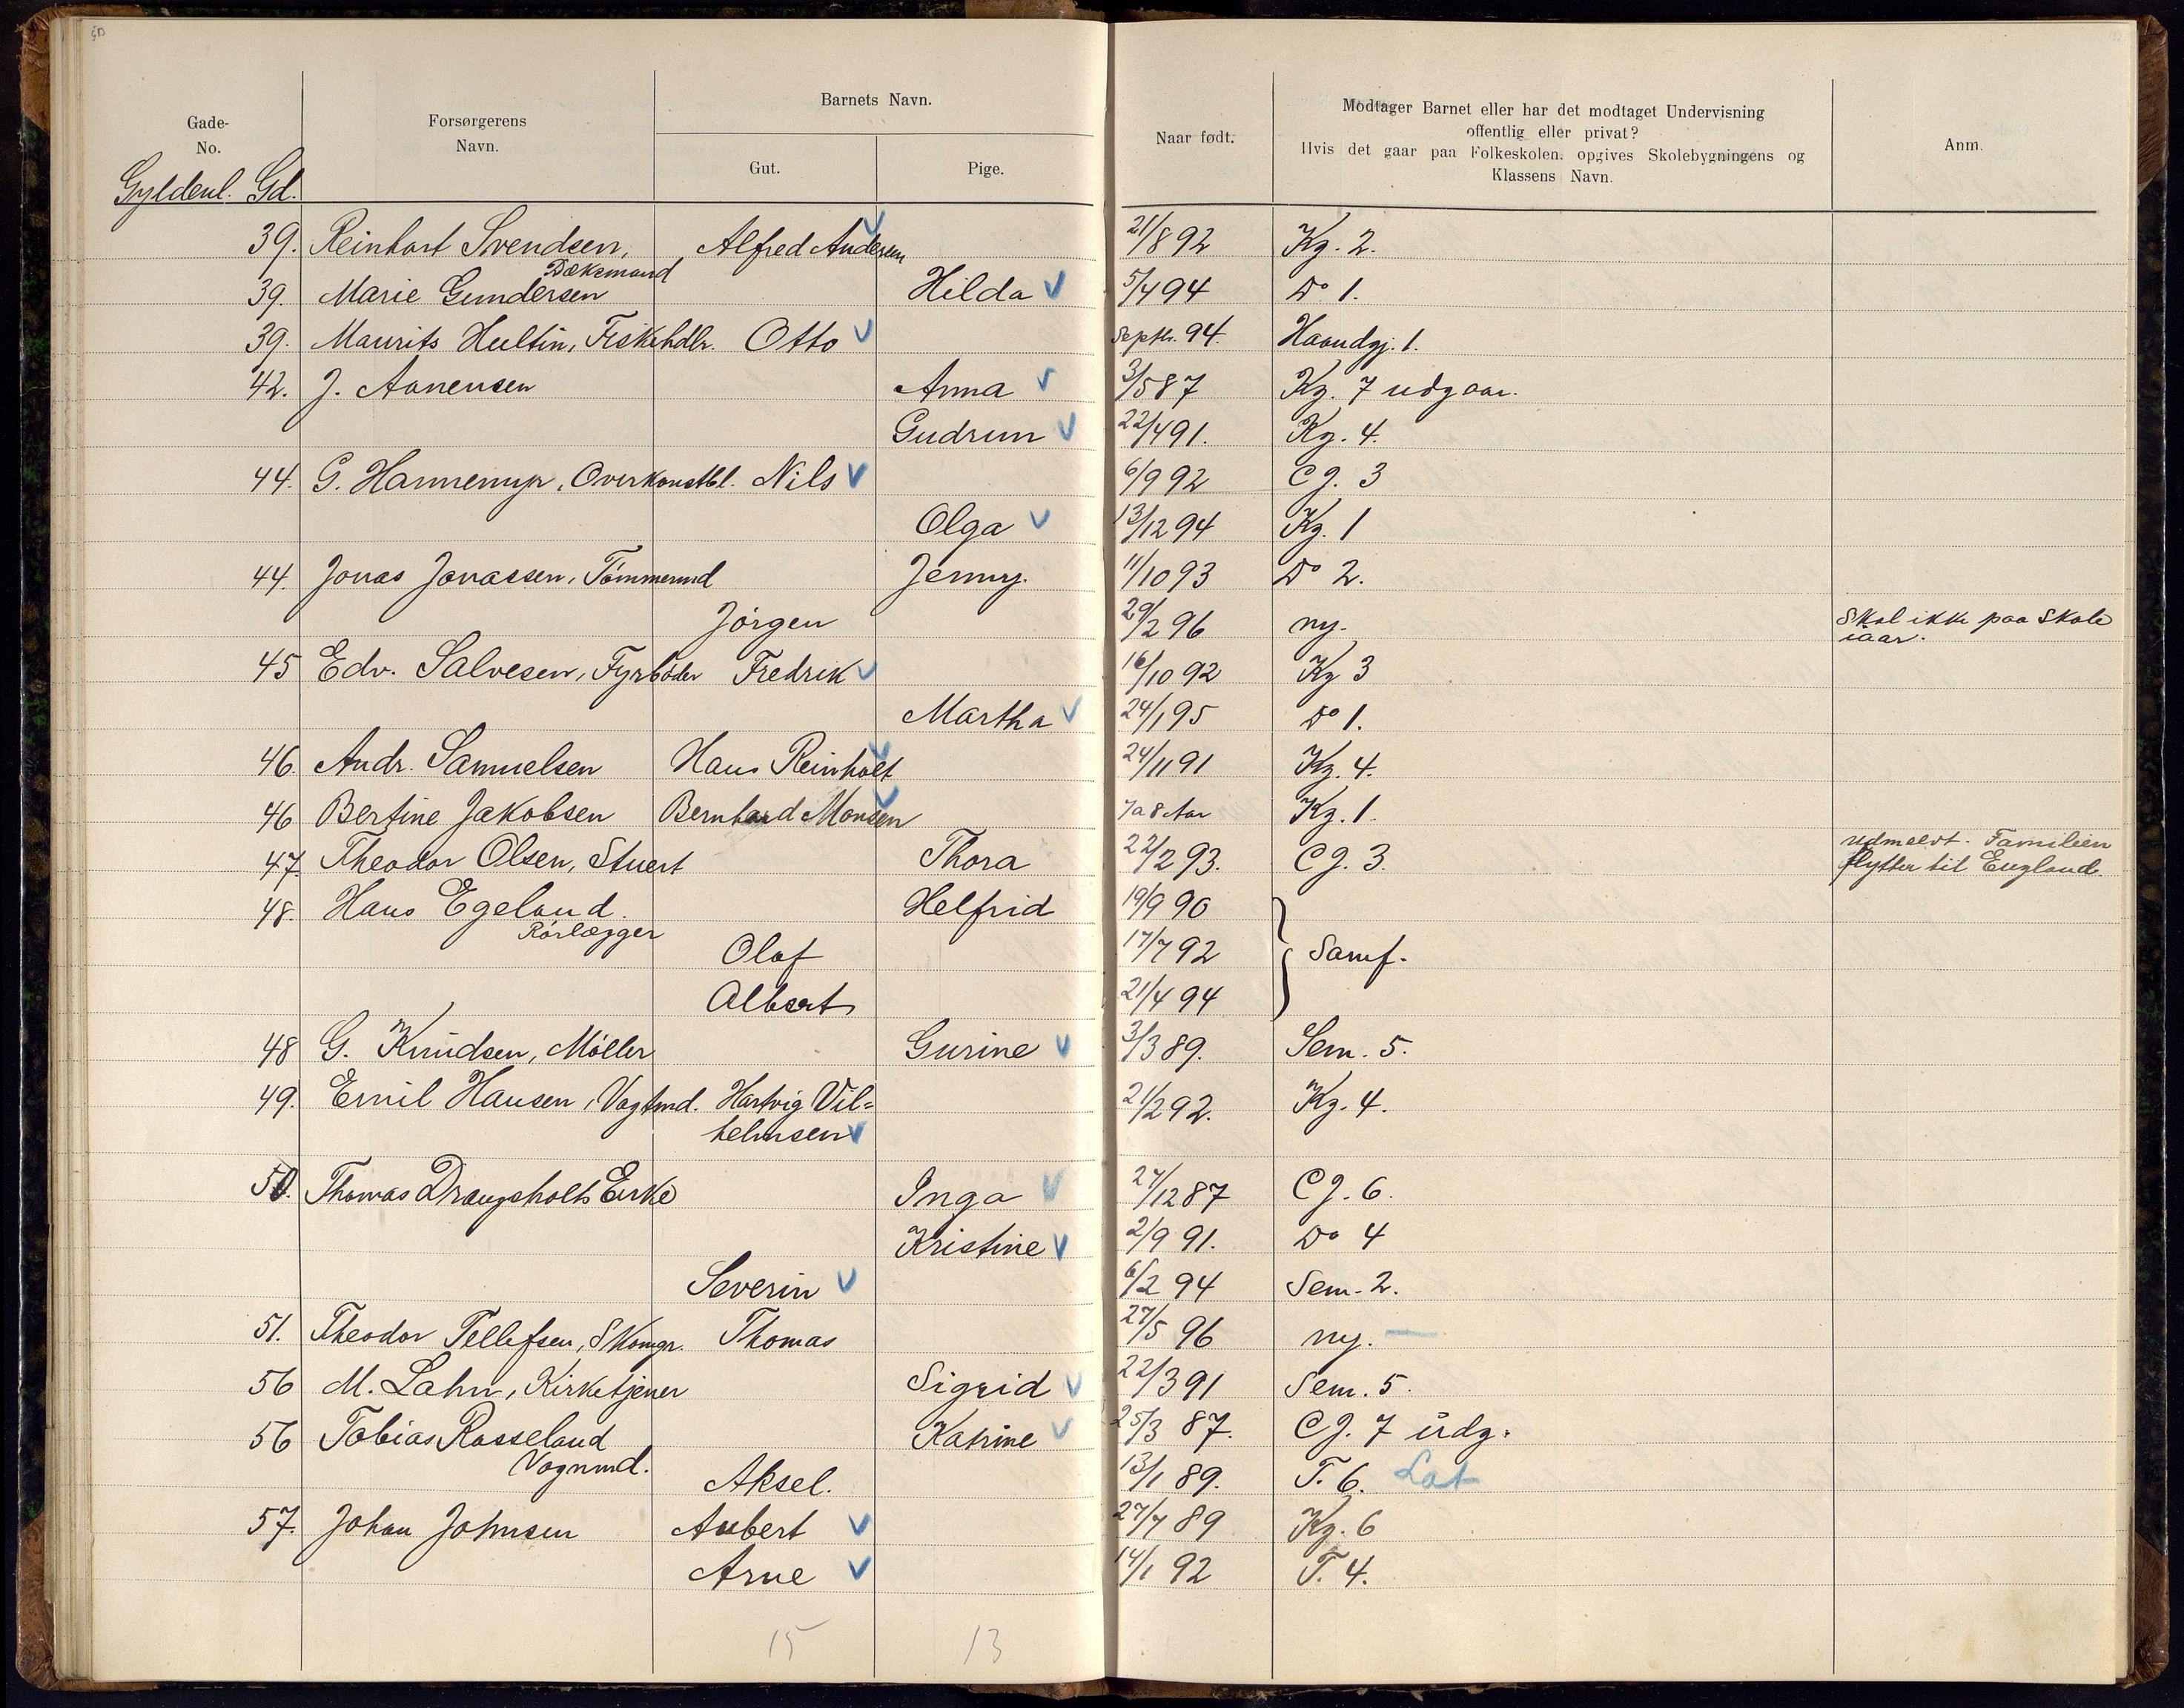 Gade-
No.
Forsørgerens
Navn.
Barnets Navn.
Gut.
Pige.
Naar født.
Modtager Barnet eller har det modtaget Undervisning
offentlig eller privat?
Hvis det gaar paa Folkeskolen, opgives Skolebygningens og
Klassens Navn.
Anm.
Gyldenl. Gd.
39. Reinhart Svendsen, Alfred Andersen 21/8 92 Kg. 2.
Dæksmand
39. Marie Gundersen Hilda 5/4 94 Do 1.
39. Maurits Hultin, Fiskehdlr. Otto Septbr. 94. Haandgj. 1.
42. J. Aanensen Anna 3/5 87 Kg. 7 udgaar.
Gudrun 22/4 91. Kg. 4.
44. G. Hannemyr, Overkonstbl. Nils 6/9 92 CJ. 3
Olga 13/12 94 Kg. 1
44. Jonas Jonassen, Tømmermd Jenny. 11/10 93 Do 2.
Jørgen 29/2 96 ny. Skal ikke paa Skole
iaar.
45 Edv. Salvesen, Fyrbøder Fredrik 16/10 92 Kg 3
Martha 24/1 95 Do 1.
46. Andr. Samuelsen Hans Reinholt 24/11 91 Kg. 4.
46 Bertine Jakobsen Bernhard Monsen 7 a 8 Aar Kg. 1.
47. Theodor Olsen, Stuert Thora 22/2 93. CJ. 3. udmeldt. Familien
flytter til England.
48. Hans Egeland. Helfrid 19/9 90
Rørlægger
Olaf 17/7 92 Samf.
Albert 21/4 94
48 G. Knudsen, Møller Gurine 3/3 89. Sem. 5.
49. Emil Hansen, Vagtmd. Hartvig Vil=
helmsen 21/2 92. Kg. 4.
50. Thomas Drangsholts Enke Inga 27/12 87 CJ. 6.
Kristine 2/9 91. Do 4
Severin 6/2 94 Sem. 2.
51. Theodor Tellefsen, Skomgr. Thomas 27/5 96 ny.
56 M. Lahn, Kirketjener Sigrid 22/3 91 Sem. 5.
56 Tobias Rosseland Katrine 25/3 87. CJ. 7 udg.
Vognmd.
Aksel. 13/1 89. T. 6. Lat
57. Johan Johnsen Aubert 27/7 89 Kg. 6
Arne 14/1 92 T. 4.
15 13